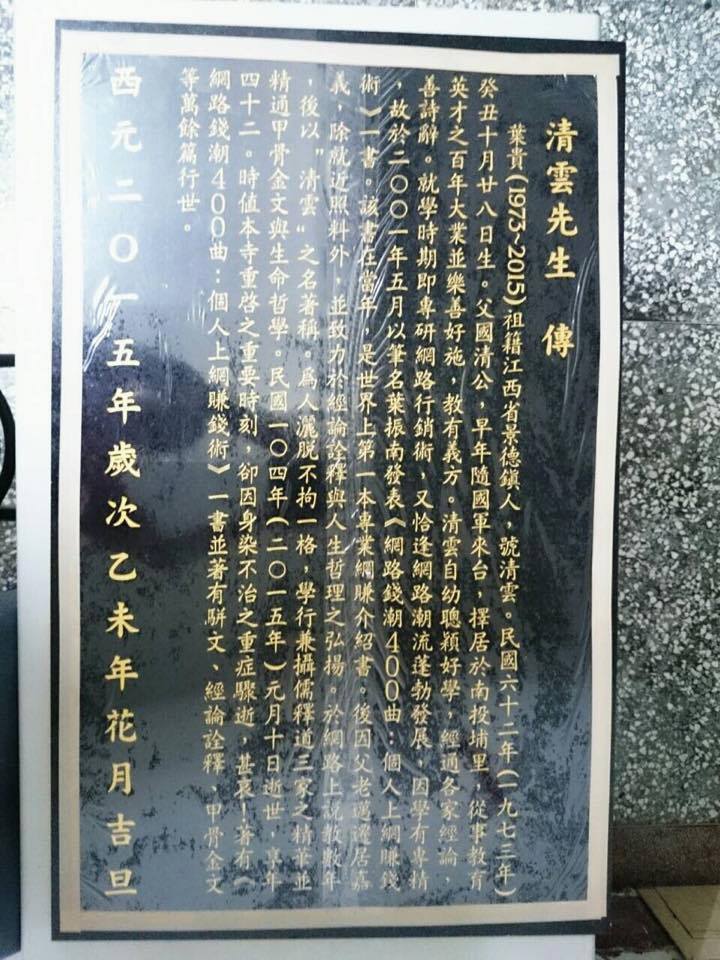 清雲先生 傳
葉貴(1973~2015)祖籍江西省景德鎮人，號清雲。民國六十二年(一九七三年)
癸丑十月廿八日生。父國清公，早年隨國軍來台，擇居於南投埔里，從事教育
英才之百年大業並樂善好施，教有義方。清雲自幼聰穎好學，經通各家經論，
善詩辭。就學時期即專研網路行銷術，又恰逢網路潮流蓬勃發展，因學有專精
，故於二○○一年五月以筆名葉振南發表《網路錢潮400曲：個人上網賺錢
術》一書。該書在當年，是世界上第一本專業網賺介紹書。後因父老邁遷居嘉
義，除就近照料外，並致力於經論詮釋與人生哲理之弘揚。於網路上說教數年
，後以"清雲"之名著稱。為人灑脫不拘一格，學行兼攝儒釋道三家之精華並
精通甲骨金文與生命哲學。民國一○四年(二○一五年)元月十日逝世，享年
四十二。時值本寺重啓之重要時刻，卻因身染不治之重症驟逝，甚哀！著有《
網路錢潮400曲：個人上網賺錢術》一書並著有駢文、經論詮釋、甲骨金文
等萬餘篇行世。
西元二○一五年歲次乙未年花月吉旦